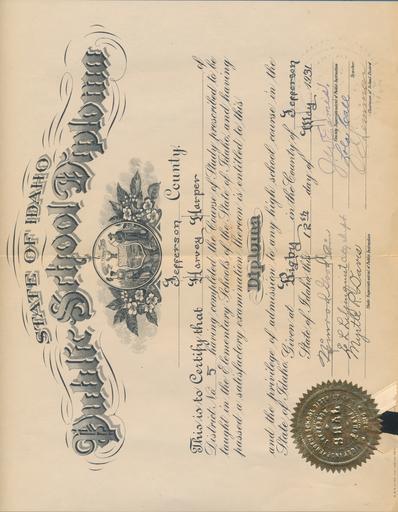 STATE OF IDAHO
Public School Diploma
Jefferson County.
This is to Certify that Harvey Harper of
District No. 5 having completed the Course of Study prescribed to be
taught in the Elementary Schools of the State of Idaho, and having
passed a satisfactory examination therein is entitled to this
Diploma
and the privilege of admission to any high school course in the
State of Idaho. Given at Rigby in the County of Jefferson
State of Idaho, this 12th day of May 1931
County Superintendent of Public Instruction
Teacher
Chairman of School Board
Myrtle R. Davis
State Superintendent of Public Instruction